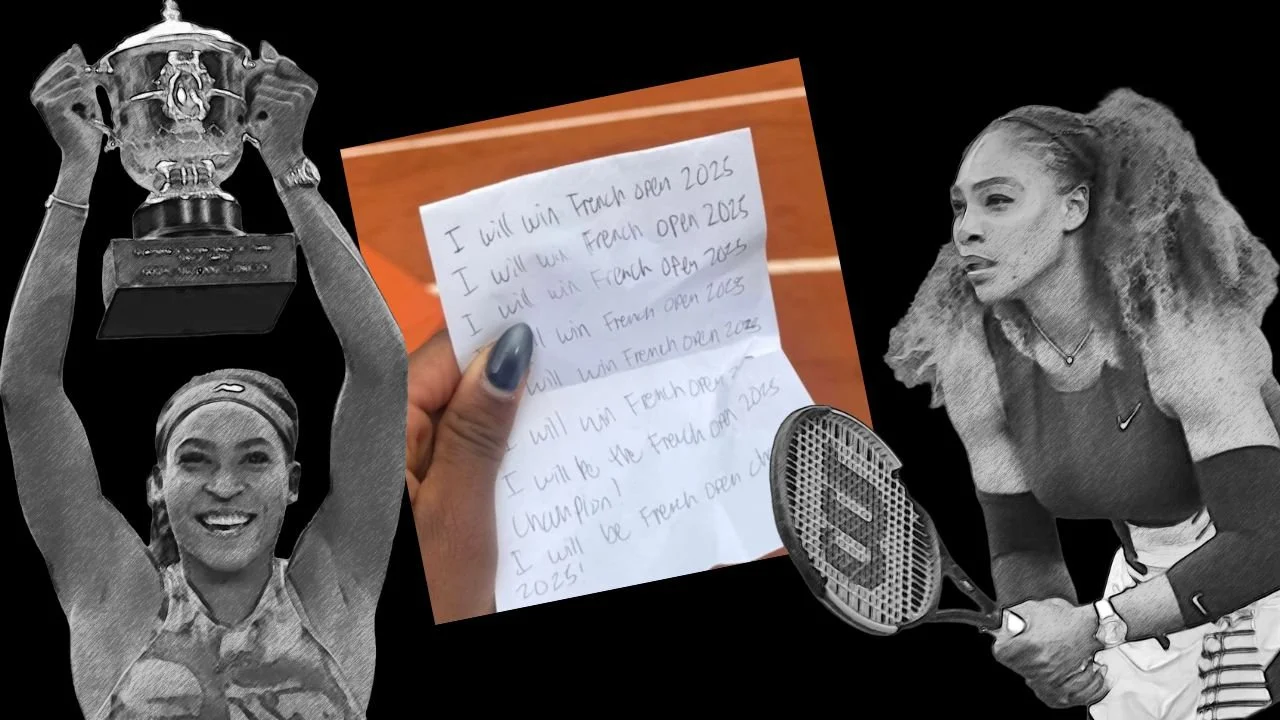 I will win French open 2025
I will win French open 2025
I will win French open 2025
ll win French open 2025
will win French open 2025
I will win French open
I will be the French open 2025
Champion!
I will be French open ch
2025!